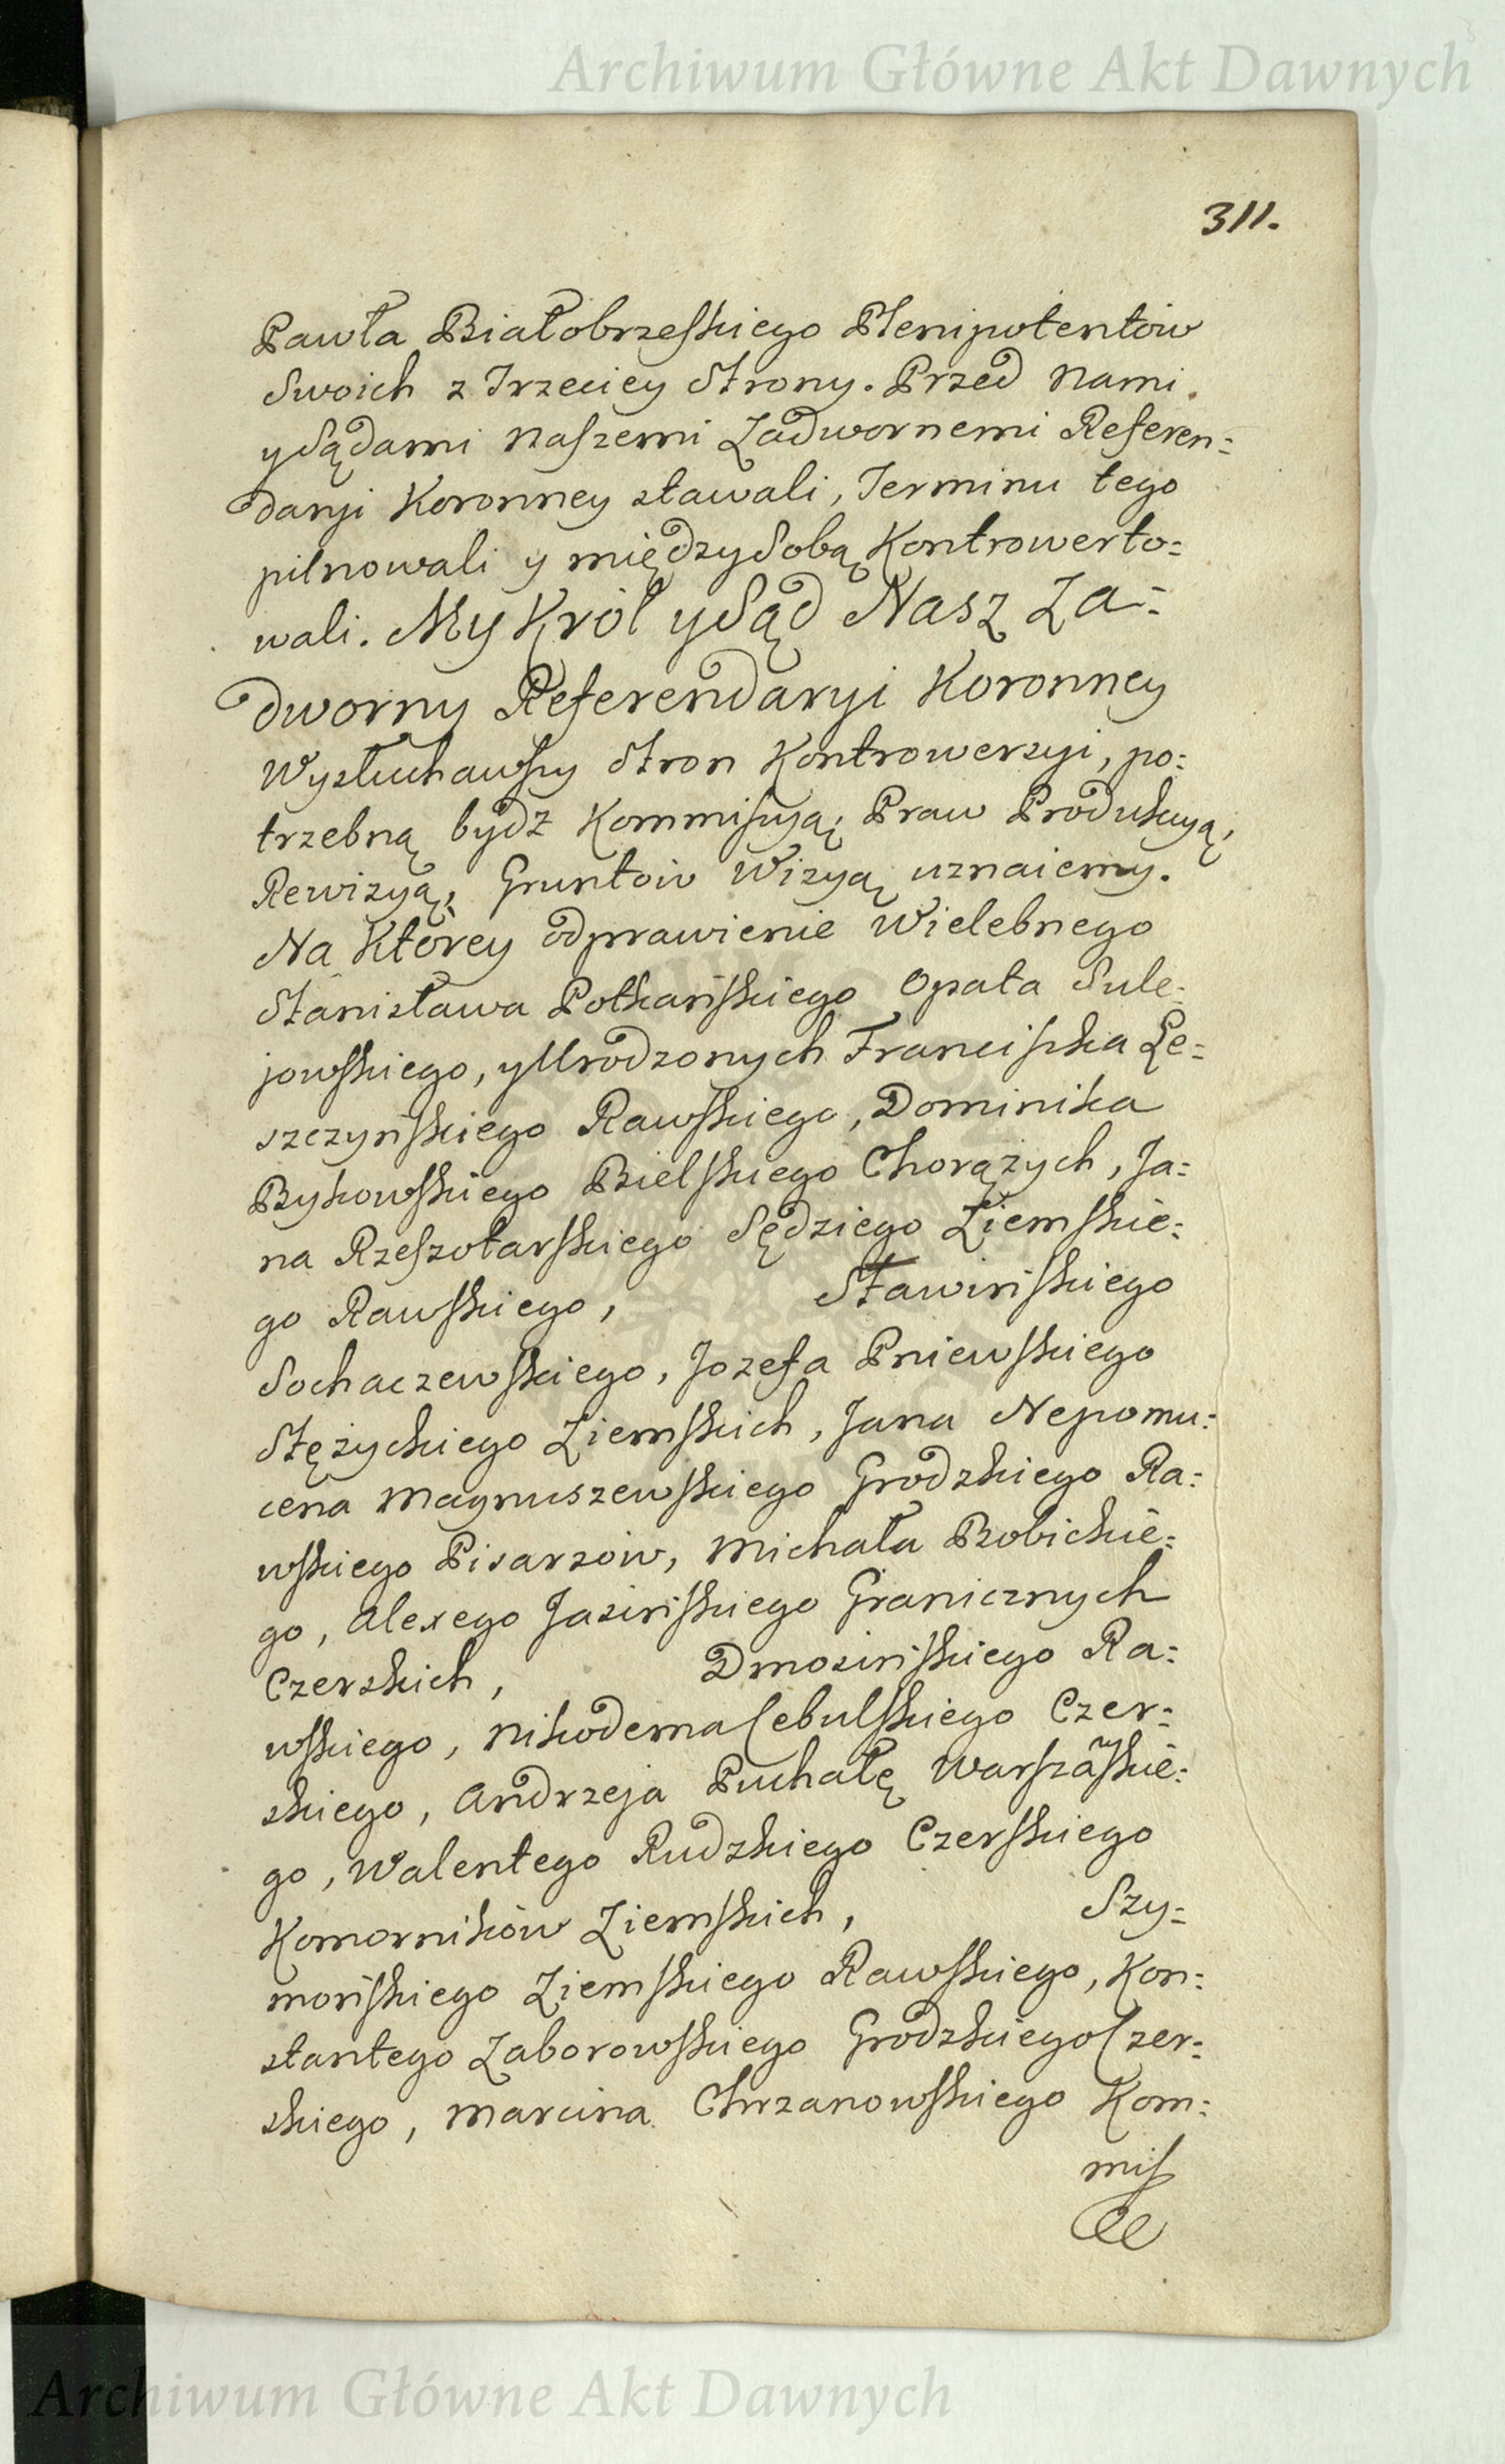 Archiwum Główne Akt Dawnych
311.
Pawła Białobrzeskiego Plenipotentów
Swoich z Trzeciey Strony. Przed Nami
y Sądami Naszemi Zadwornemi Referen=
daryi Koronney stawali, Terminu tego
pilnowali y między Sobą Kontrowerto=
wali. My Król y Sąd Nasz Za=
dworny Referendaryi Koronney
Wysłuchawszy Stron Kontrowersyi, po=
trzebną bydź Kommissyą, Praw Produkcyą,
Rewizyą, Gruntów Wizyą uznaiemy.
Na Którey odprawienie Wielebnego
Stanisława Potkańskiego Opata Sule=
jowskiego, y Urodzonych Franciszka Le=
szczyńskiego Rawskiego, Dominika
Bykowskiego Bielskiego Chorążych, Ja=
na Rzeszotarskiego Sędziego Ziemskie=
go Rawskiego, Sławińskiego
Sochaczewskiego, Jozefa Pniewskiego
Stężyckiego Ziemskich, Jana Nepomu=
cena Magnuszewskiego Grodzkiego Ra=
wskiego Pisarzów, Michała Bobickie=
go, Alexego Jasińskiego Granicznych
Czerskich, Dmosińskiego Ra=
wskiego, Nikodema Cebulskiego Czer=
skiego, Andrzeja Puchałę Warszawskie=
go, Walentego Rudzkiego Czerskiego
Komorników Ziemskich, Szy=
mońskiego Ziemskiego Rawskiego, Kon=
stantego Zaborowskiego Grodzkiego Czer=
skiego, Marcina Chrzanowskiego Kom=
mis
Archiwum Główne Akt Dawnych